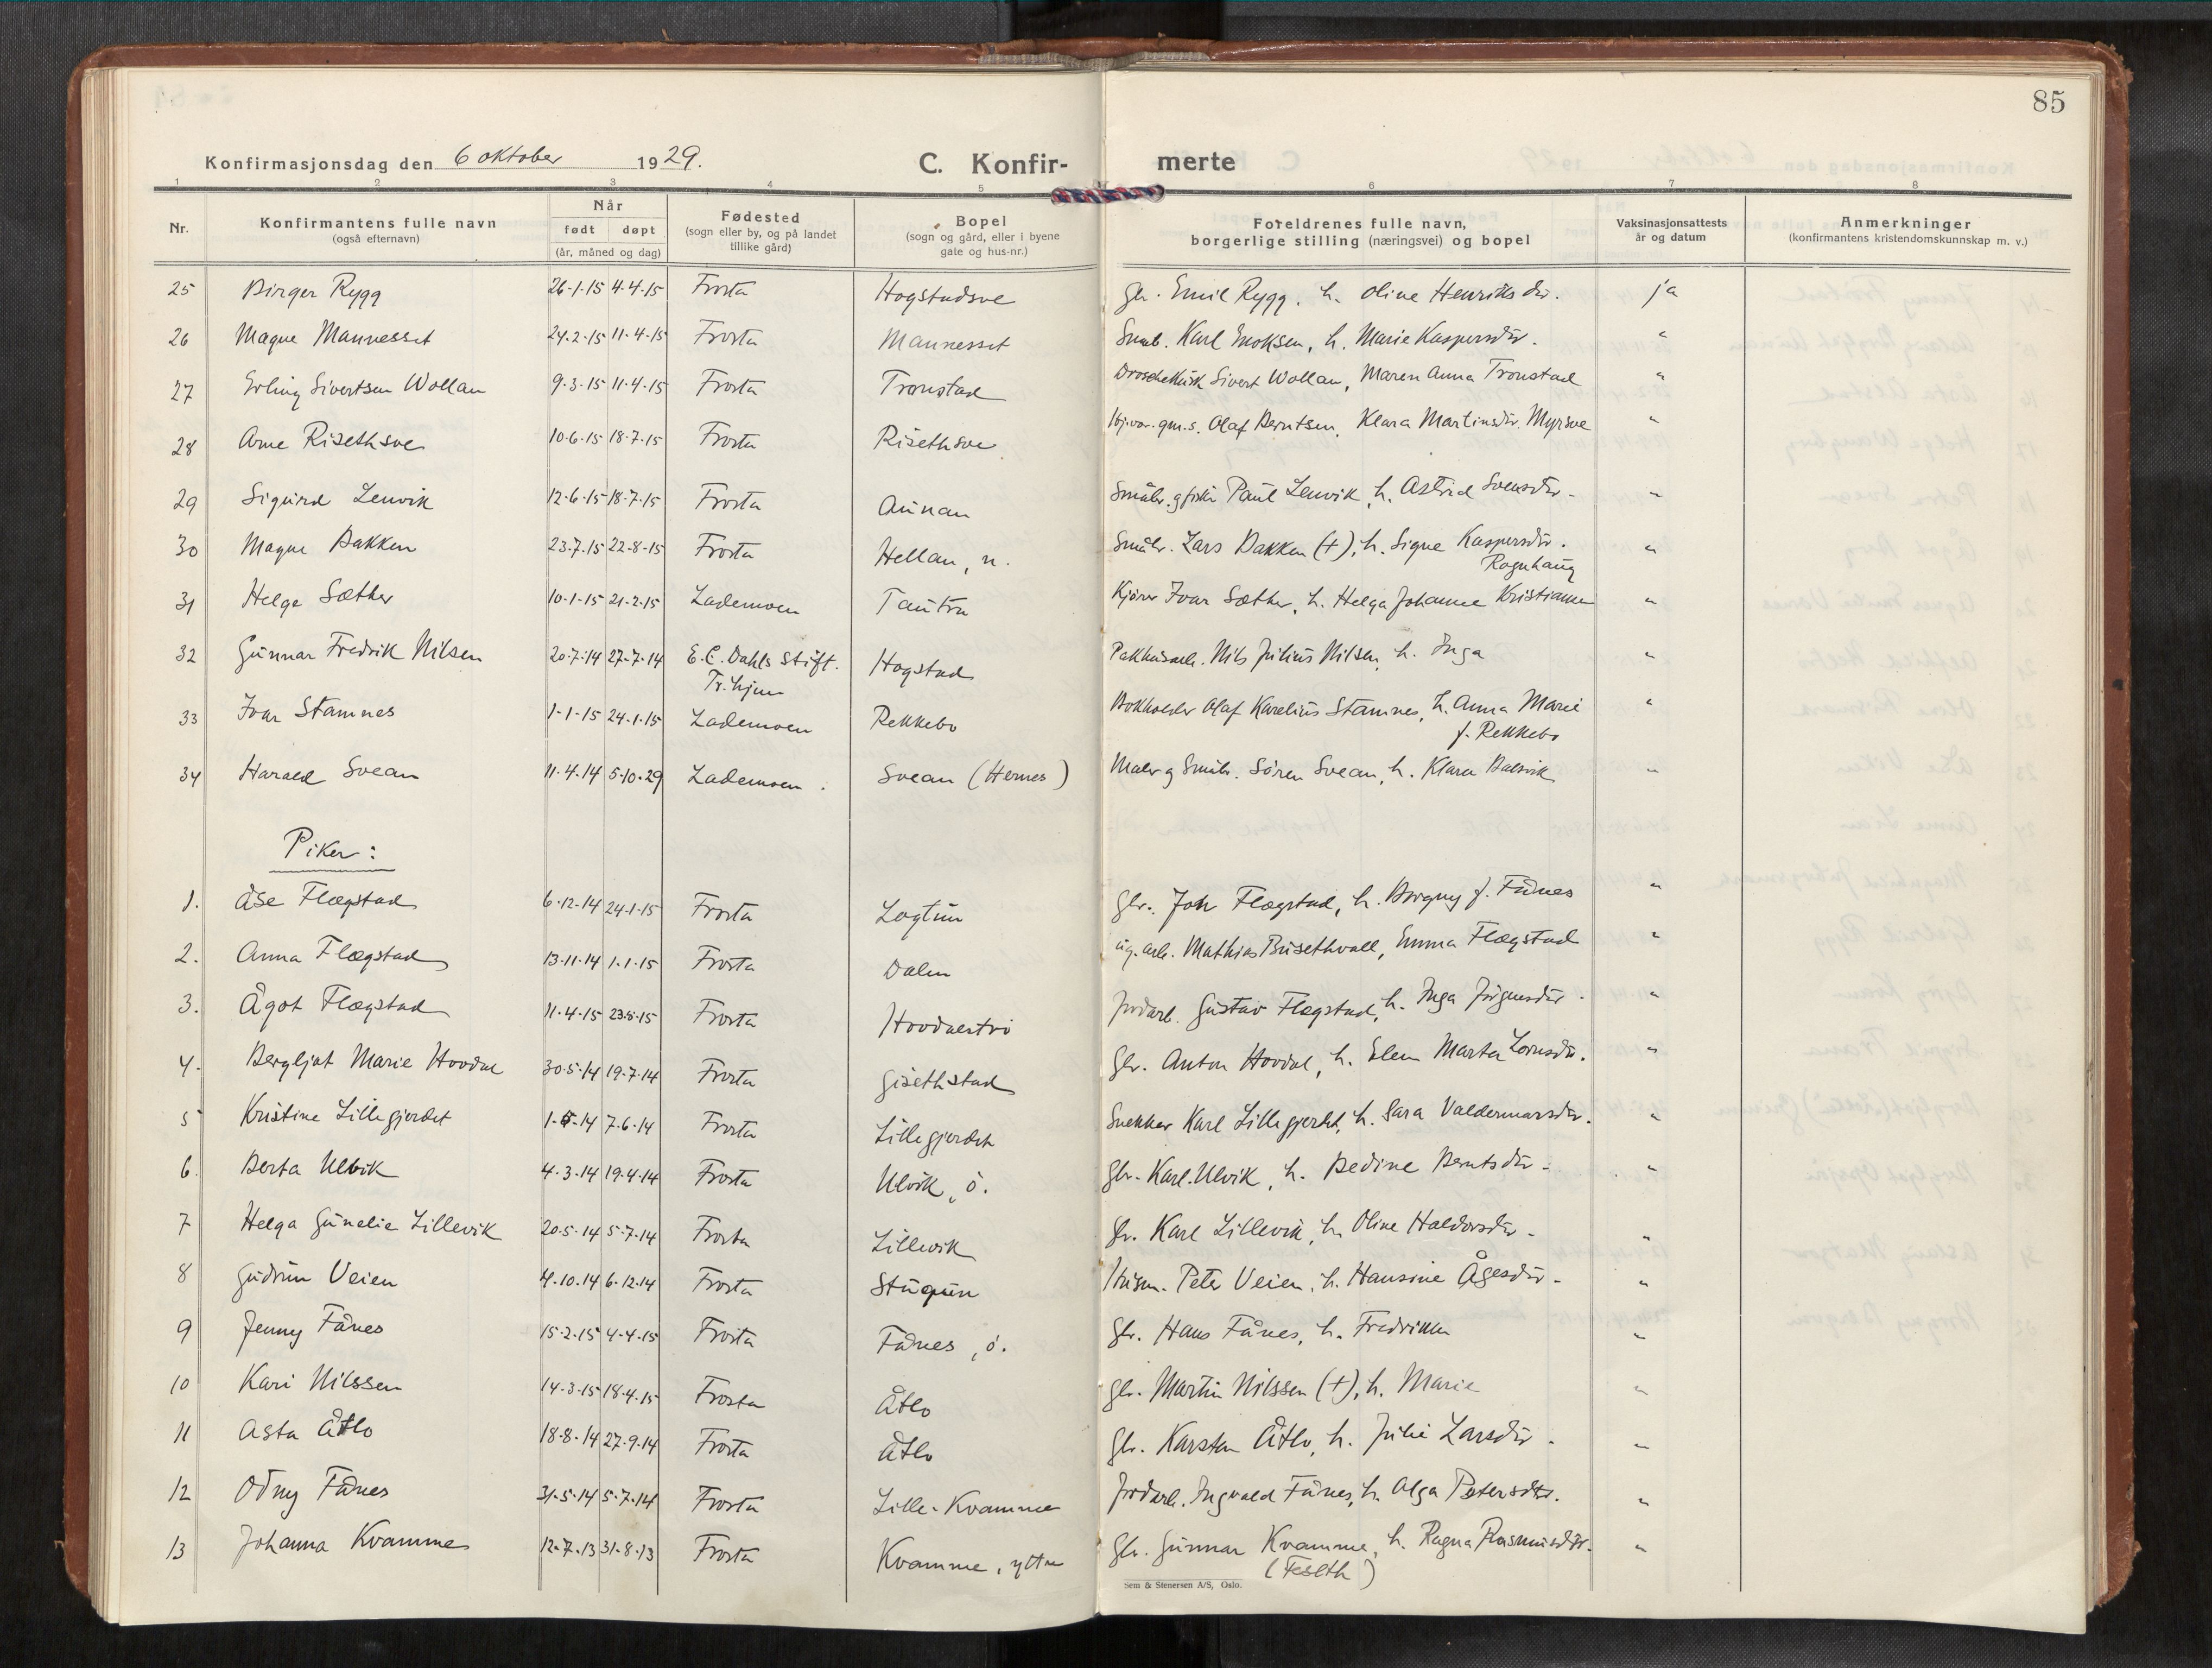 85
Konfirmasjonsdag den 6 oktober 1929. C. Konfir- merte
1 2 3 4 5 6 7 8
Nr. Konfirmantens fulle navn (også efternavn) Når født døpt (år, måned og dag) Fødested (sogn eller by, og på landet tillike gård) Bopel (sogn og gård, eller i byene gate og hus-nr.) Foreldrenes fulle navn, borgerlige stilling (næringsvei) og bopel Vaksinasjonsattests år og datum Anmerkninger (konfirmantens kristendomskunnskap m. v.)
25 Birger Rygg 26-1-15 4-4-15 Frosta Hogstadsve Gbr. Emil Rygg, h. Oline Henriksdtr. ja
26 Magne Mannesset 24-2-15 11-4-15 Frosta Mannesset Småb. Karl Enoksen, h. Marie Kaspersdtr. "
27 Erling Sivertsen Wollan 9-3-15 11-4-15 Frosta Tronstad Droschekusk Sivert Wollan, Maren Anna Tronstad "
28 Arne Risethsve 10-6-15 18-7-15 Frosta Risethsve Olaf Berntsen, Klara Martinsdtr. Myrsve "
29 Sigurd Lenvik 12-6-15 18-7-15 Frosta Aunan Småbr. g fisker Paul Lenvik, h. Astrid Svensdtr. "
30 Magne Bakken 23-7-15 22-8-15 Frosta Hellan, n. Småbr. Lars Bakken (+), h. Signe Kaspersdtr. "
Rognhaug
31 Helge Sæther 10-1-15 21-2-15 Lademoen Tautra Kjører Ivar Sæther, h. Helga Johanne Kristianne "
32 Gunnar Fredrik Nilsen 20-7-14 27-7-14 E. C. Dahls Stift. Hogstad Pakkhusarb. Nils Julius Nilsen, h. Inga "
Tr.hjem
33 Ivar Stamnes 1-1-15 24-1-15 Lademoen Rekkebo Bokholder Olaf Karelius Stamnes, h. Anna Marie "
f. Rekkebo
34 Harald Svean 11-4-14 5-10-29 Lademoen. Svean (Hernes) Maler g Småbr. Sören Svean, h. Klara Balsvik "
Piker:
1. Åse Flægstad 6-12-14 24-1-15 Frosta Logtun Gbr. Joh Flægstad, h. Borgny f. Fånes "
2. Anna Flægstad 13-11-14 1-1-15 Frosta Dalen Mathias Busethvoll, Emma Flægstad "
3. Ågot Flægstad 11-4-15 23-5-15 Frosta Hovdaestrø Jordarb. Gustav Flægstad, h. Inga Jörgensdtr. "
4. Bergljot Marie Hovdal 30-5-14 19-7-14 Frosta Gisethstad Gbr. Anton Hovdal, h. Elen Marta Lornsdtr. "
5 Kristine Lillegjerdet 1-5-14 7-6-14 Frosta Lillegjerdet Snekker Karl Lillegjerdet, h. Sara Valdemarsdtr. "
6. Berta Ulvik 4-3-14 19-4-14 Frosta Ulvik, ö. Gbr. Karl Ulvik, h. Bedine Berntsdtr. "
7 Helga Gunelie Lillevik 20-5-14 5-7-14 Frosta Lillevik Gbr. Karl Lillevik, h. Oline Haldorsdtr. "
8 Gudrun Veien 4-10-14 6-12-14 Frosta Stugun Husm. Peter Veien, h. Hansine Ågesdtr. "
9 Jenny Fånes 15-2-15 4-4-15 Frosta Fånes, ö. Gbr. Hans Fånes, h. Fredrikke "
10 Kari Nilssen 14-3-15 18-4-15 Frosta Åtlo Gbr. Martin Nilssen (+), h. Marie "
11 Asta Åtlo 18-8-14 27-9-14 Frosta Åtlo Gbr. Karsten Åtlo, h. Julie Larsdtr. "
12 Odny Fånes 31-5-14 5-7-14 Frosta Lille-Kvamme Jordarb. Ingvald Fånes, h. Olga Petersdtr. "
13 Johanna Kvamme 12-7-13 31-8-13 Frosta Kvamme, yttre Gbr. Gunnar Kvamme, h. Ragna Rasmusdtr. "
(Feseth)
Sem & Stenersen A/S, Oslo.